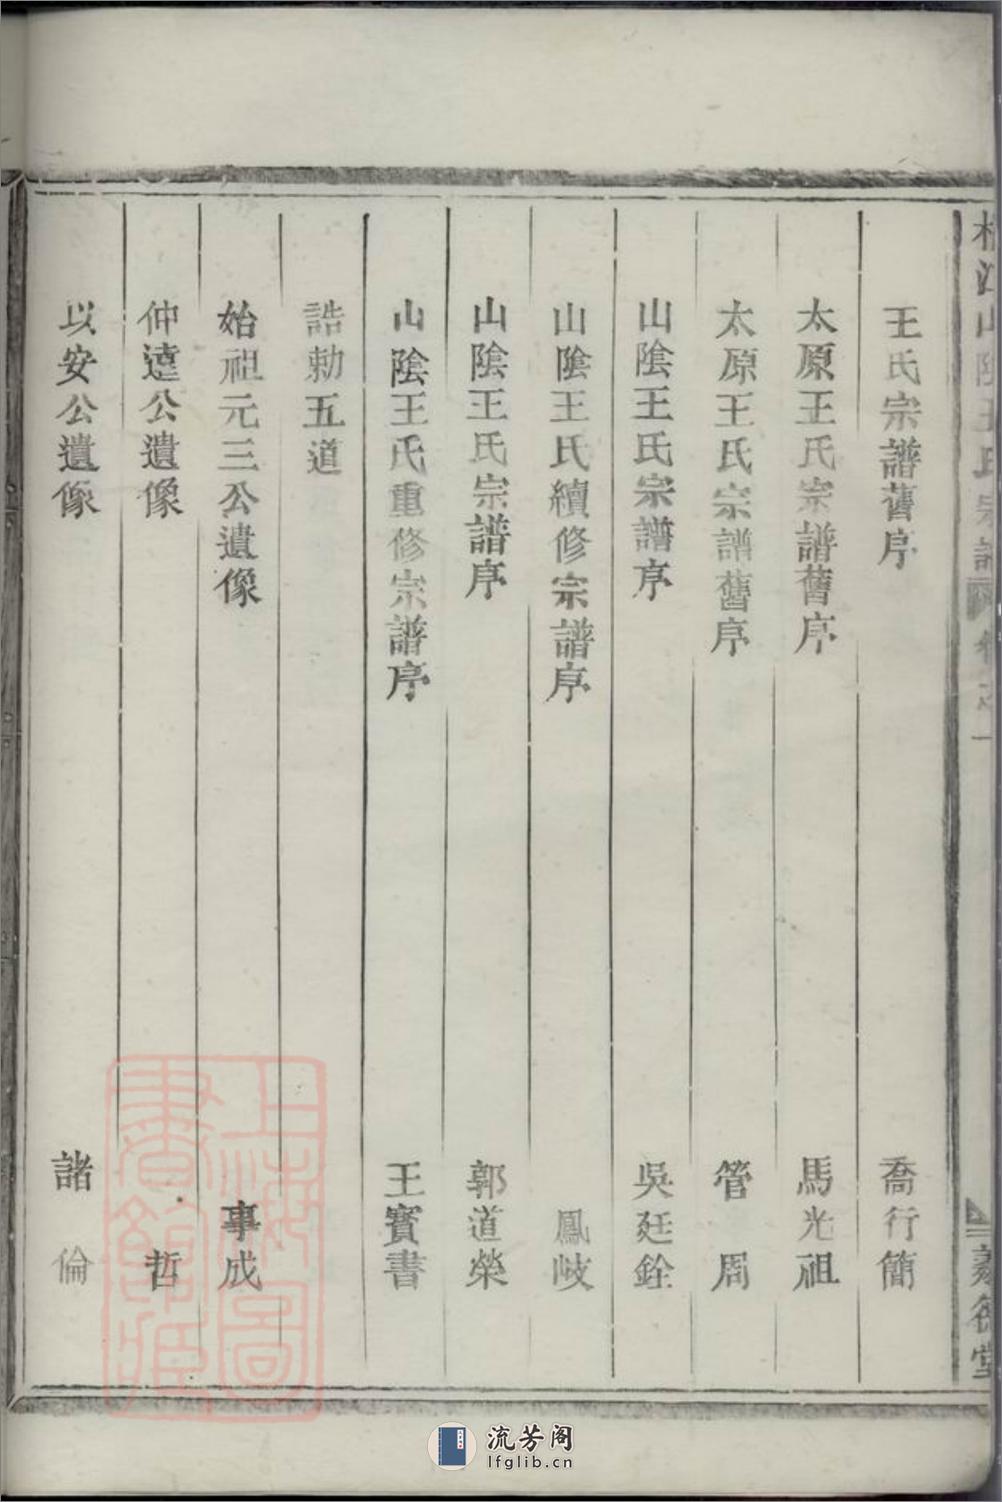 山陰王氏宗譜 卷之一 義德堂
王氏宗譜舊序 喬行簡
太原王氏宗譜舊序 馬光祖
太原王氏宗譜舊序 管周
山陰王氏宗譜序 吳廷銓
山陰王氏續修宗譜序 鳳岐
山陰王氏宗譜序 郭道榮
山陰王氏重修宗譜序 王賓書
誥勅五道
始祖元三公遺像 事成
仲達公遺像 哲
以安公遺像 諸倫
上海圖書館藏
流芳阁
lfglib.cn